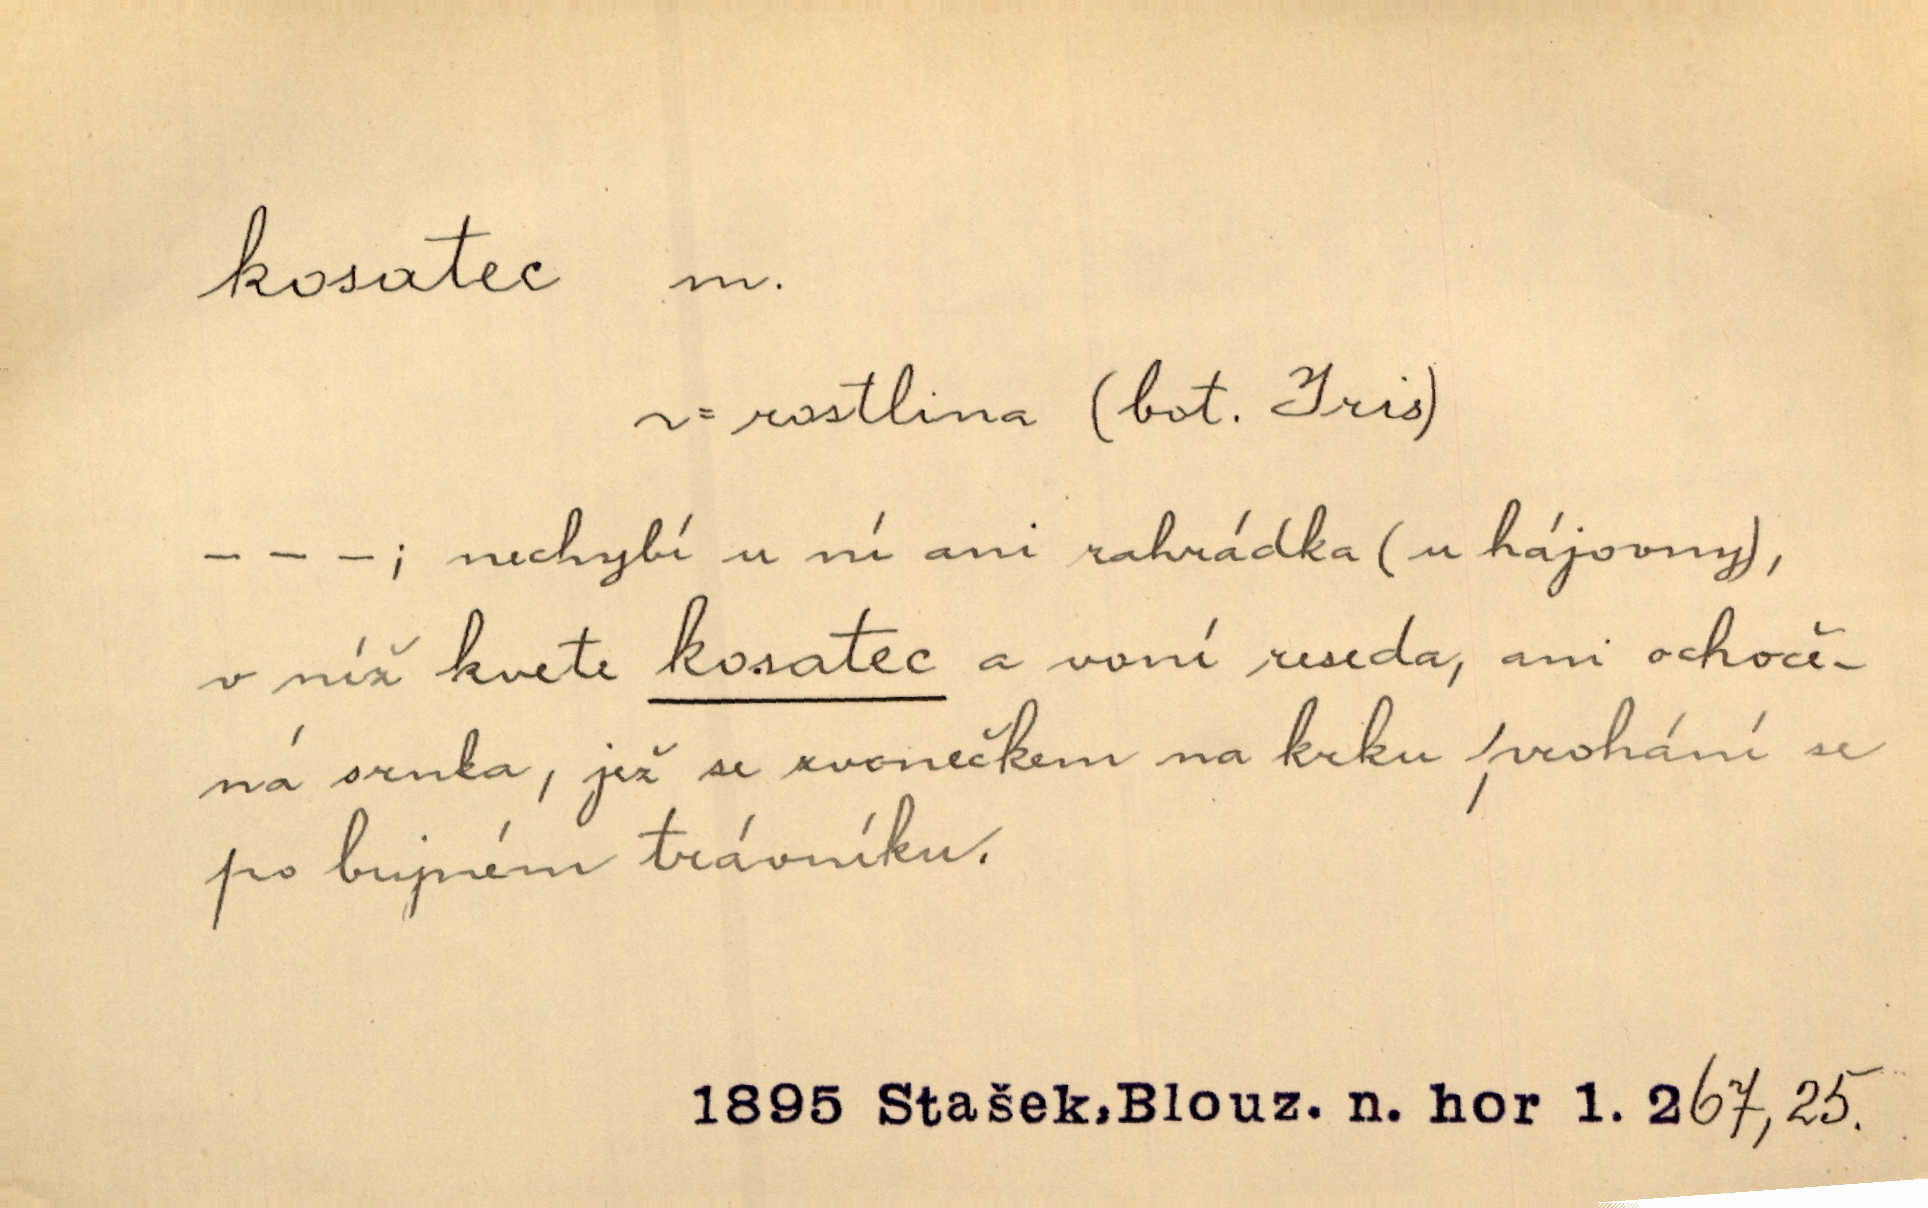 kosatec m.
~= rostlina (bot. Iris)
– – –; nechybí u ní ani zahrádka (u hájovny),
v níž kvete kosatec a voní reseda, ani ochoče-
ná srnka, jež se zvonečkem na krku prohání se
po bujném trávníku.
1895 Stašek, Blouz. n. hor 1. 267, 25.